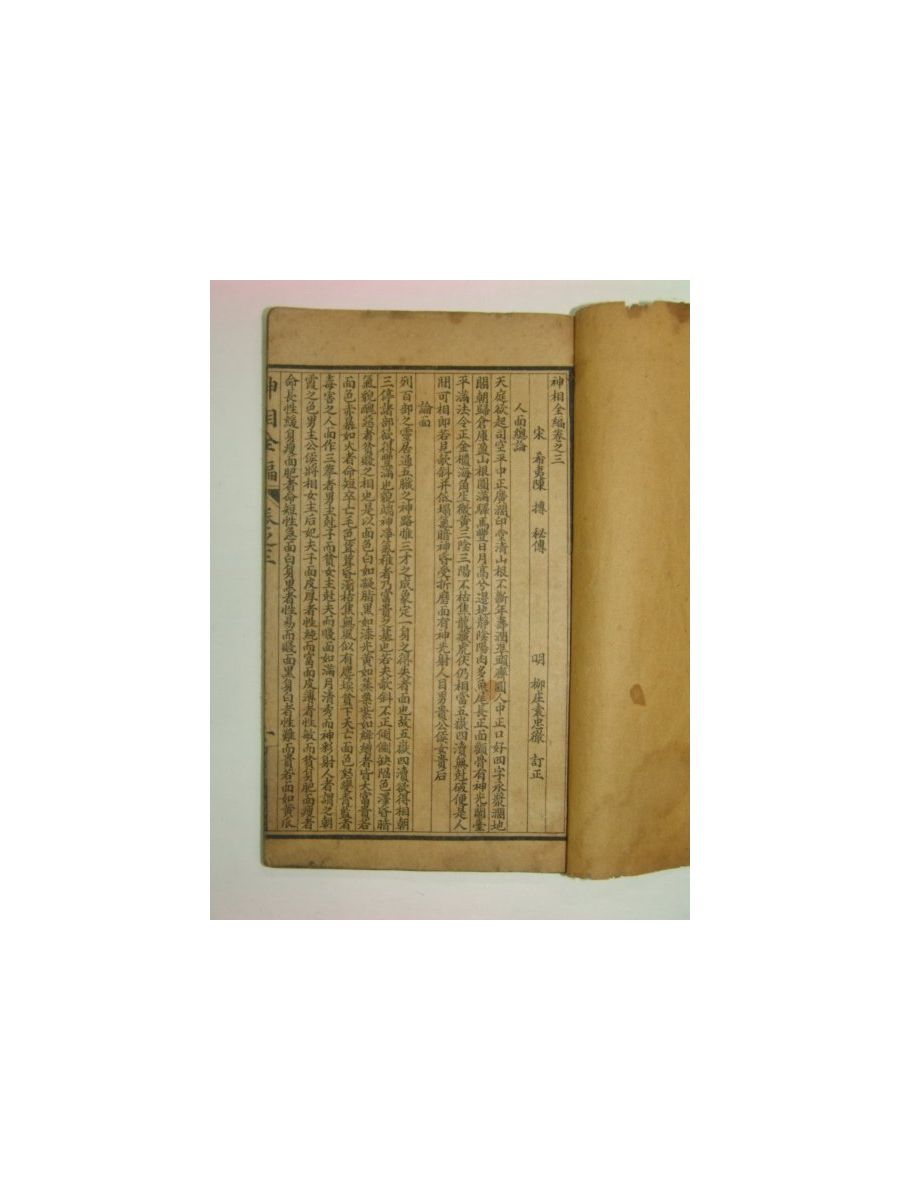 神相全編卷之三
宋 希夷陳 摶 秘傳 明 柳庄袁忠徹 訂正
人面總論
天庭欲起司空平中正廣濶印堂清山根不斷年壽潤準頭齊圓人中正口好四字承漿濶地
閣朝歸倉庫盈山根圓滿驛馬豐日月高兮邊地靜陰陽肉多魚尾長正面顴骨有神光蘭臺
平滿法令正金櫃海角生微黃三陰三陽不枯焦龍藏虎伏仍相當五嶽四瀆無尅破便是人
間可相郎若見欹斜并低塌氣暗神昏受折磨面有神光射人目男貴公侯女貴后
論面
列百部之靈居通五臟之神路惟三才之成象定一身之得失者面也故五嶽四瀆欲得相朝
三停諸部欲得豐滿也貌端神淨氣雍者乃富貴之基也若夫欹斜不正傾側缺陷色澤昏暗
氣貌醜惡者貧賤之相也是以面色白如凝脂黑如漆光黃如蒸栗紫如絳繒者皆大富貴若
面色赤暴如火者命短卒亡毛色茸茸昏濁枯焦無風似有塵埃貧下夭亡面色怒變青藍者
毒害之人面作三拳者男主尅子而貧女主尅夫而賤面如滿月清秀而神彩射人者謂之朝
霞之色男主公侯將相女主后妃夫子面皮厚者性純而富面皮薄者性敏而貧身肥面瘦者
命長性緩身瘦面肥者命短性急面白身黑者性易而賤面黑身白者性難而貴若面如黃瓜
神相全編 卷之三 一